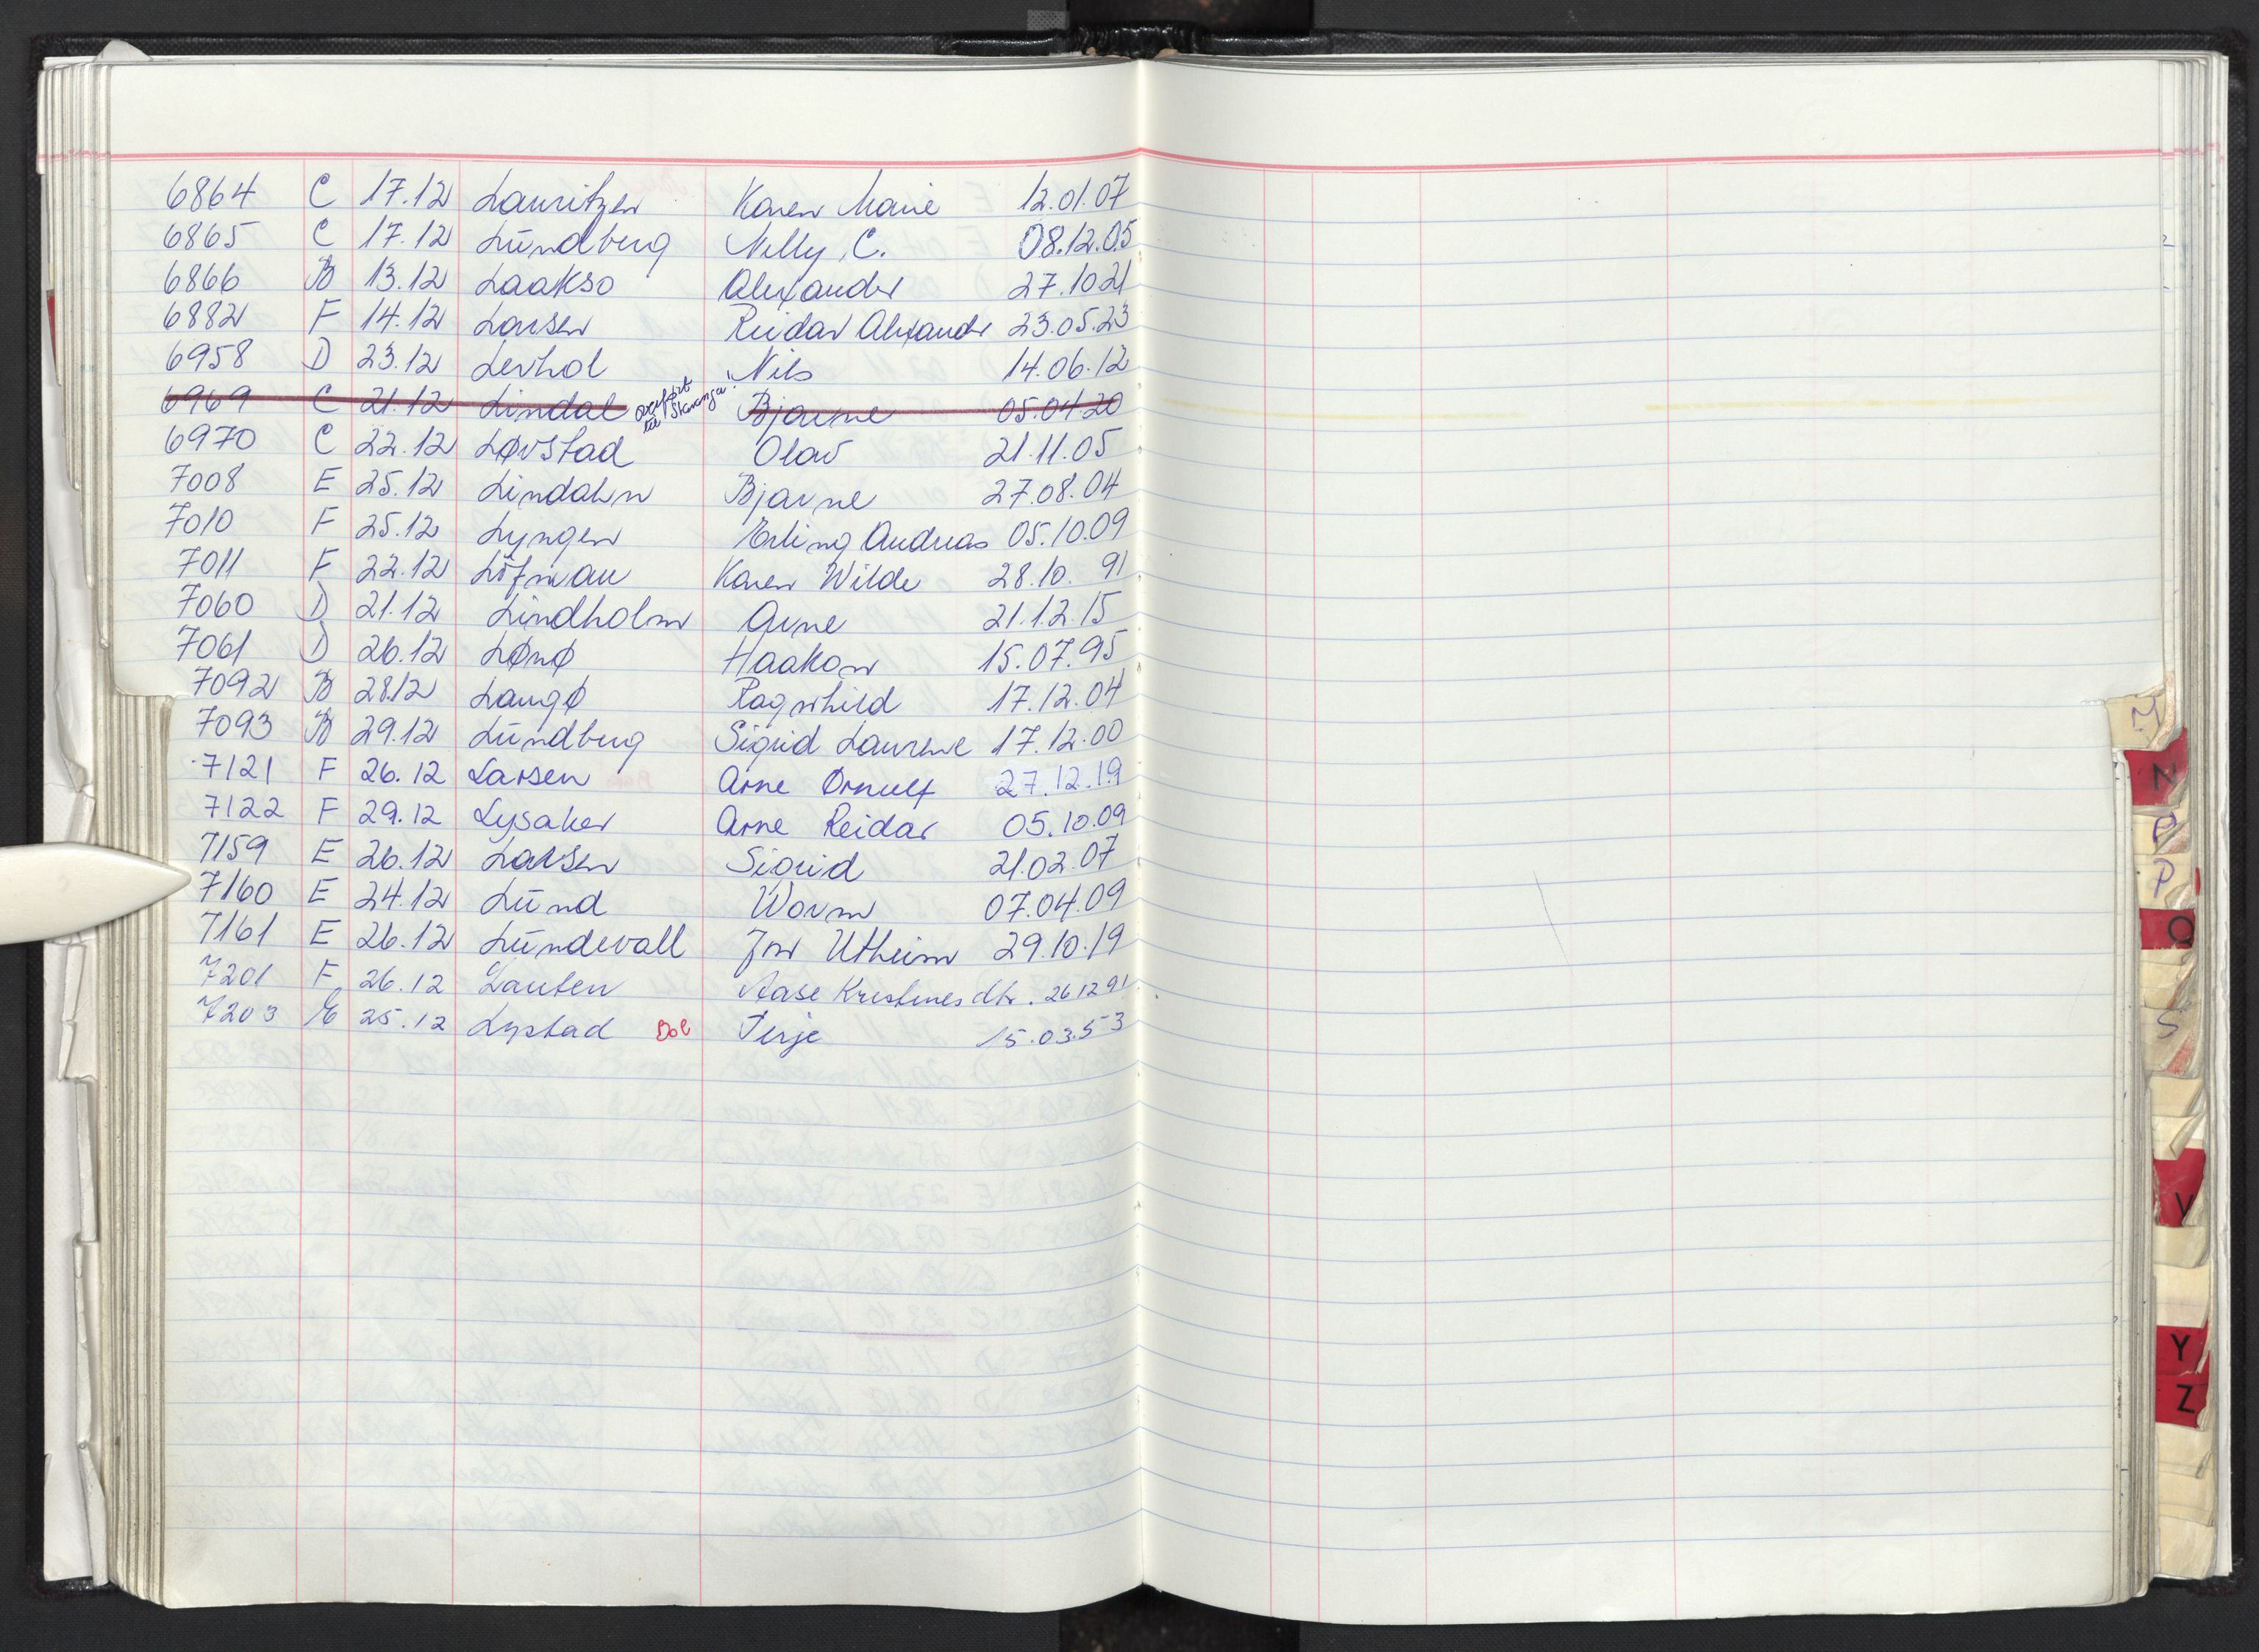 6864 C 17.12 Lauritzen Karen Marie 12.01.07
6865 C 17.12 Lundberg Nelly C. 08.12.05
6866 B 13.12 Laakso Alexander 27.10 21
6882 F 14.12 Larsen Reidar Alexander 23.05.23
6958 D 23.12 Levhol Nils 14.06.12
6969 C 21.12 Lindal overført til Stavanger Bjarne 05.04.20
6970 C 22.12 Løvstad Olav 21.11.05
7008 E 25.12 Lindahn Bjarne 27.08.04
7010 F 25.12 Lyngen Erling Andreas 05.10.09
7011 F 22.12 Löfman Karen Wilde 28.10. 91
7060 D 21.12 Lindholm Arne 21.12.15
7061 D 26.12 Lønø Haakon 15.07.95
7092 B 28.12 Langø Ragnhild 17.12.04
7093 B 29.12 Lundberg Sigrid Laurene 17.12.00
7121 F 26.12 Larsen Arne Ørnulf 27.12.19
7122 F 29.12 Lysaker Arne Reidar 05.10.09
7159 E 26.12 Larsen Sigrid 21.02.07
7160 E 24.12 Lund Worm 07.04.09
7161 E 26.12 Lundevall Jon Utheim 29.10.19
7201 F 26.12 Lauten Aase Kristines dtr. 26 12 91
7203 E 25.12 Lystad Bol Terje 15.03.53
M
N
P
Q
S
V
Y
Z